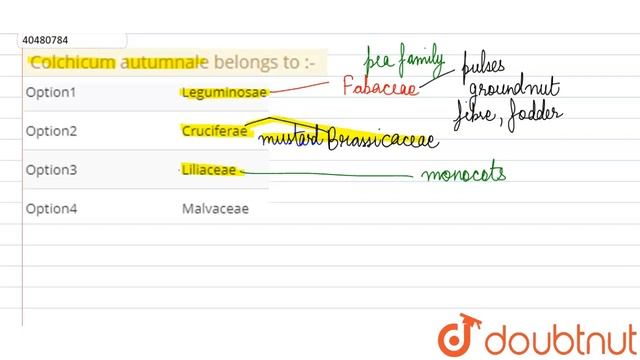 40480784
Colchicum autumnale belongs to :-
pea family
Option1 Leguminosae Fabaceae pulses
groundnut
fibre, fodder
Option2 Cruciferae mustard Brassicaceae
Option3 Liliaceae monocots
Option4 Malvaceae
doubtnut